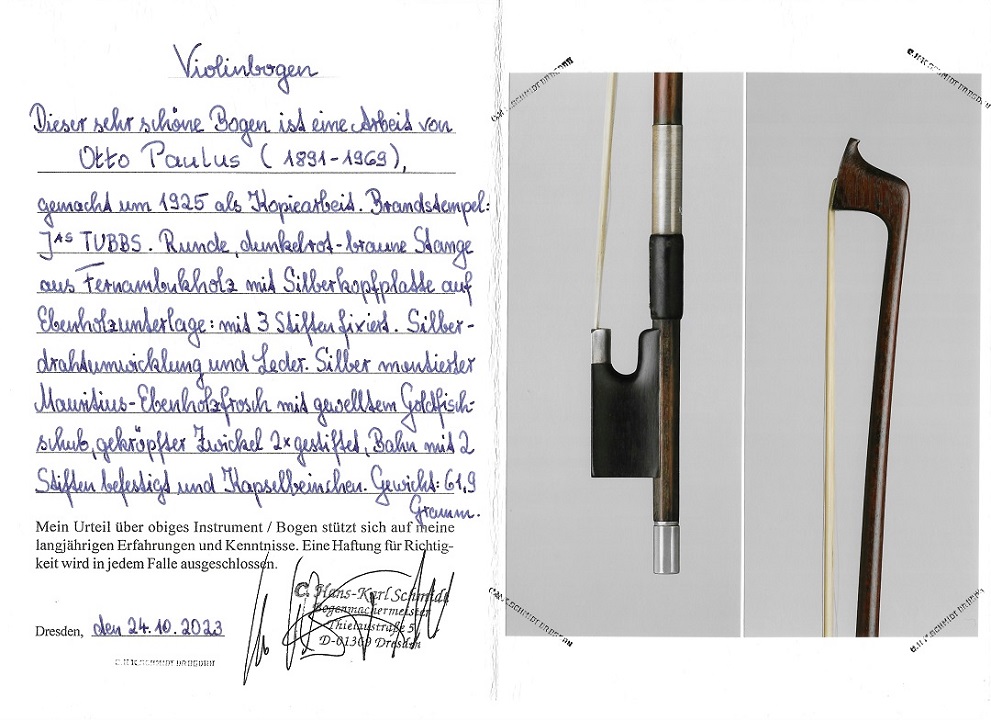 Violinbogen
Dieser sehr schöne Bogen ist eine Arbeit von
Otto Paulus (1891-1969),
gemacht um 1925 als Kopiearbeit. Brandstempel:
JAS TUBBS. Runde, dunkelrot-braune Stange
aus Fernambukholz mit Silberkopfplatte auf
Ebenholzunterlage: mit 3 Stiften fixiert. Silber-
drahtumwicklung und Leder. Silber montierter
Mauritius-Ebenholzfrosch mit gewelltem Goldfisch-
schub, gekröpfter Zwickel 2x gestiftet, Bahn mit 2
Stiften befestigt und Kapselbeinchen. Gewicht: 61,9
Gramm.
Mein Urteil über obiges Instrument / Bogen stützt sich auf meine
langjährigen Erfahrungen und Kenntnisse. Eine Haftung für Richtig-
keit wird in jedem Falle ausgeschlossen.
C. Hans-Karl Schmidt
Bogenmachermeister
Thielaustraße 5
D-01369 Dresden
Dresden, den 24.10.2023
C.H.K. SCHMIDT DRESDEN
C.H.K. SCHMIDT DRESDEN
C.H.K. SCHMIDT DRESDEN
C.H.K. SCHMIDT DRESDEN
C.H.K. SCHMIDT DRESDEN